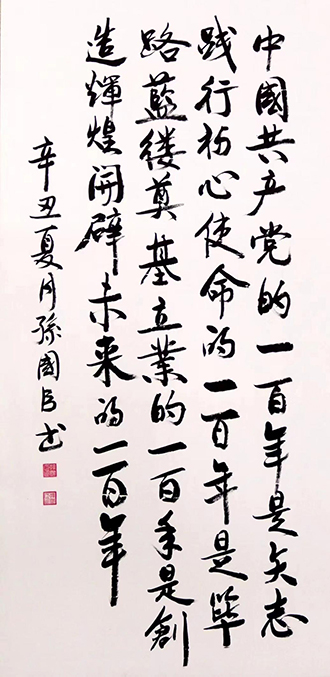 中國共产党的一百年是矢志
践行初心使命的一百年是篳
路藍缕奠基立業的一百年是創
造輝煌開辟未来的一百年
辛丑夏月孫國臣书